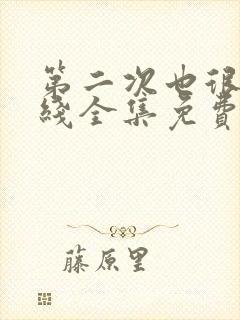 第二次也很
綫全集免費
藤原里